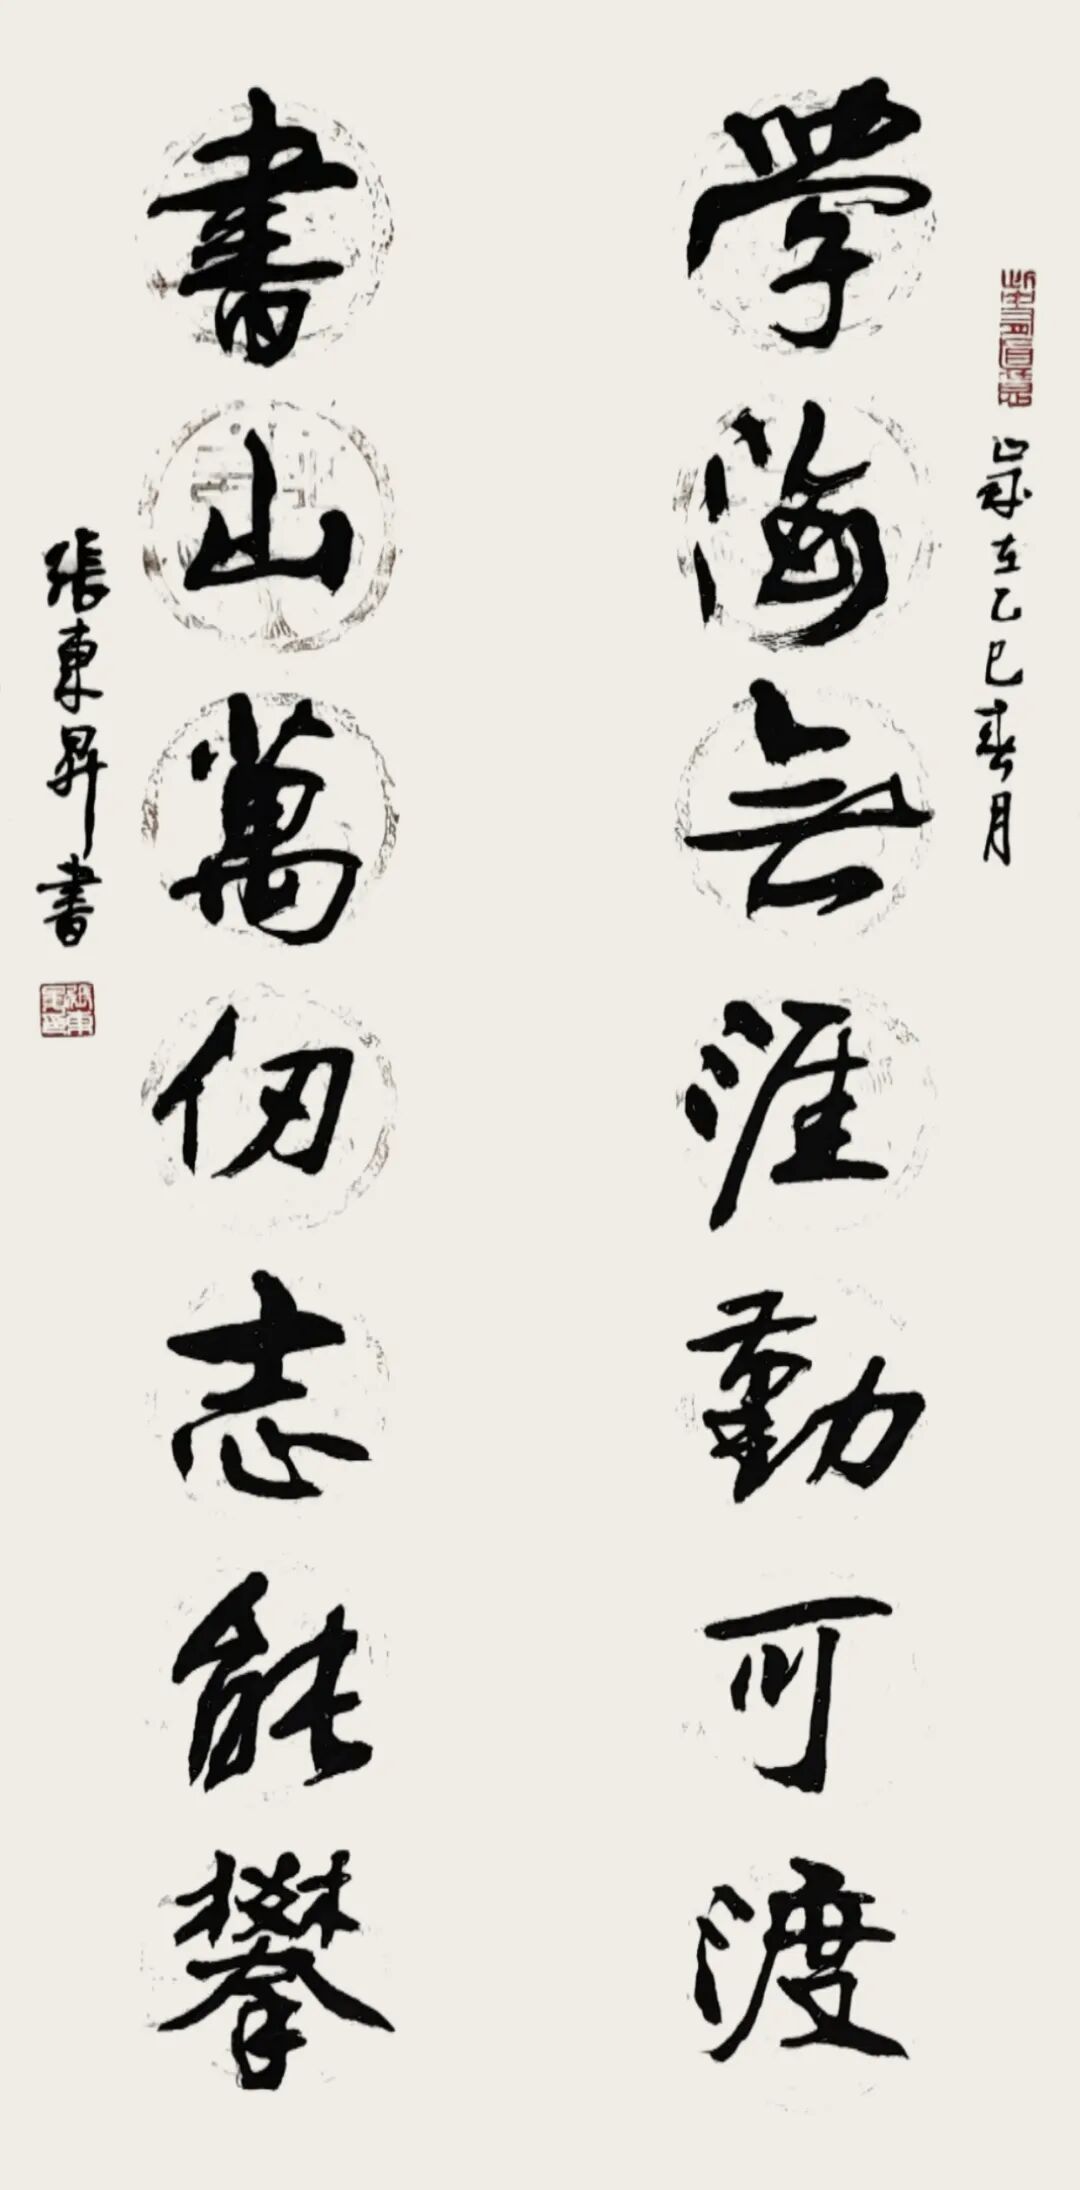 歲在乙巳春月
学海无涯勤可渡
書山萬仞志能攀
張東昇書